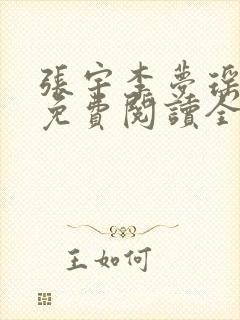 張宇李夢瑤
免費閱讀全
王如何